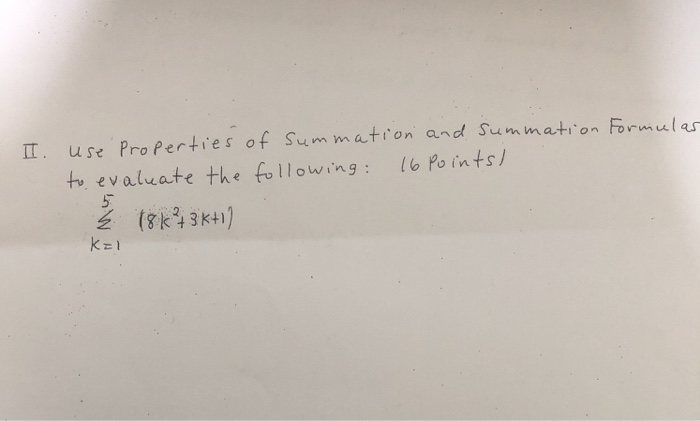 II. Use Properties of Summation and Summation Formulas
to evaluate the following: (6 Points)
5
Σ (8k²+3k+1)
k=1